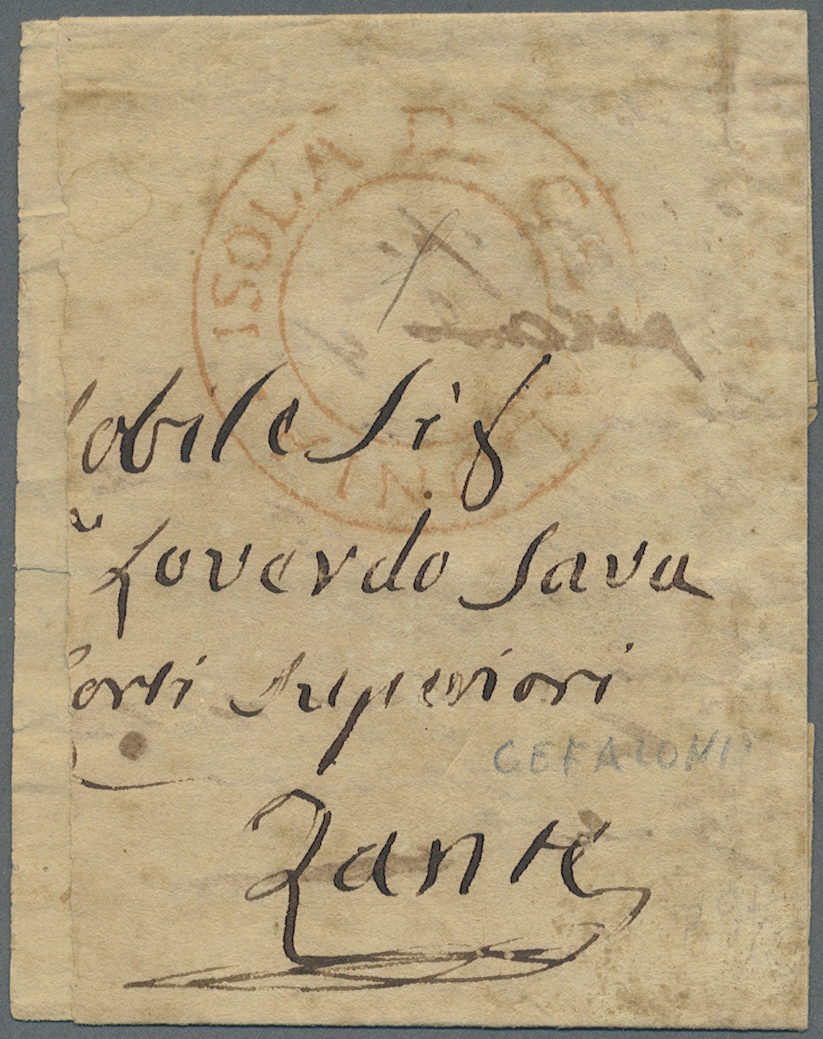 ISOLA DI CEFALONIA
obile Sig
Loverdo Sava
Corti Superiori
CEFALONI
Zante